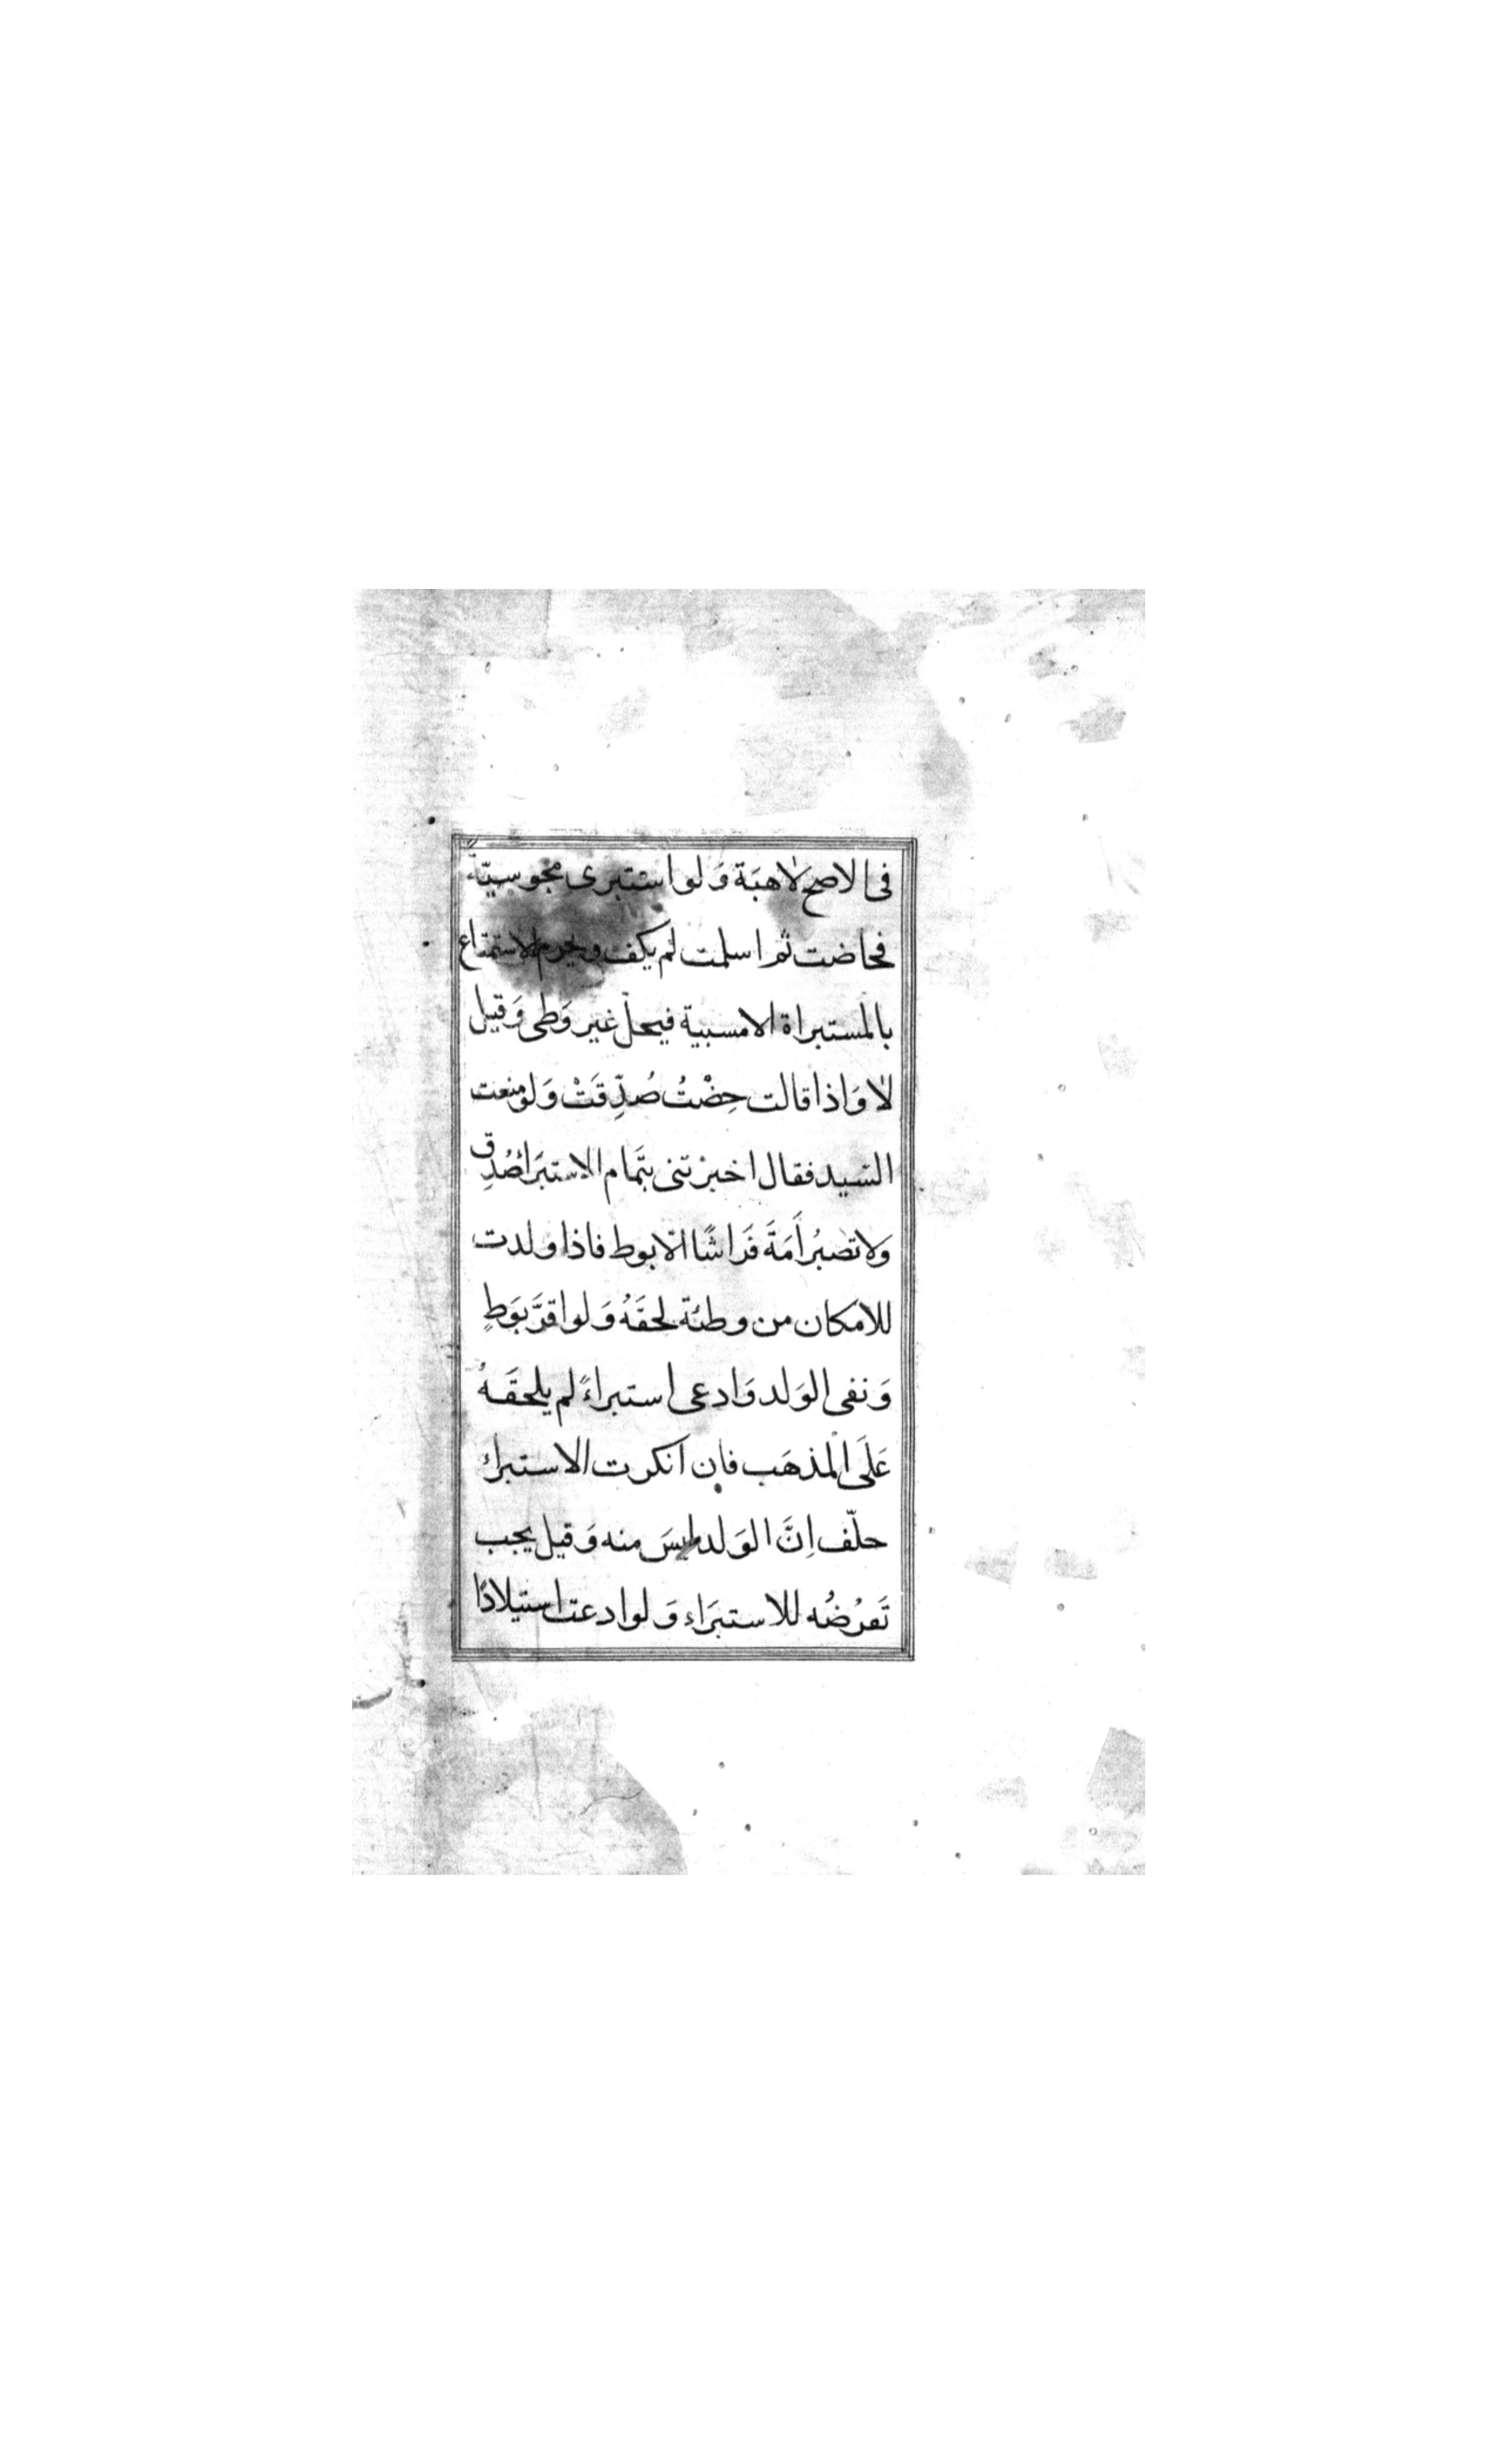 فى الاصح لاهبَة وَلو استبرى مجوسيّة
فحاضت ثم اسلمت لم يكف ويحرم الاستمتاع
بالمستبراة الا مسبية فيحلّ غير وَطى وَقيل
لا وَاذا قالت حِضْتُ صُدِّقَتْ وَلو منعت
السّيد فقال اخبرْتنى بتَمام الاستبرَاء صُدِق
وَلا تصيرُ أَمَةَ فَراشًا الّا بوط فاذا ولدت
للامكان من وطئه لحقَهُ وَلو اقرَّ بوَطٍ
وَنفى الوَلد وَادعى استبراءً لم يلحقَهُ
عَلَى الْمذهَب فان انكرت الاستبراء
حلّف اِنَّ الوَلد ليسَ منه وَقيل يجب
تَعرُضُه للاستبرَاء وَلو ادعت استيلادًا